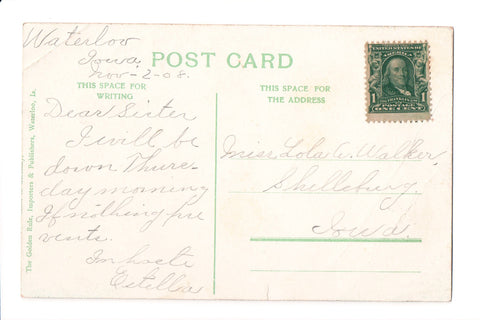 Waterloo
Iowa,
Nov-2-08.
POST CARD
THIS SPACE FOR
WRITING
THIS SPACE FOR
THE ADDRESS
UNITED STATES OF AMERICA
1
POSTAGE
ONE CENT
The Golden Rule, Importers & Publishers, Waterloo, Ia.
Dear Sister
I will be
down Thurs-
day morning
If nothing pre
vents.
In haste
Estella
Miss Lola A. Walker,
Shellsburg
Iowa.